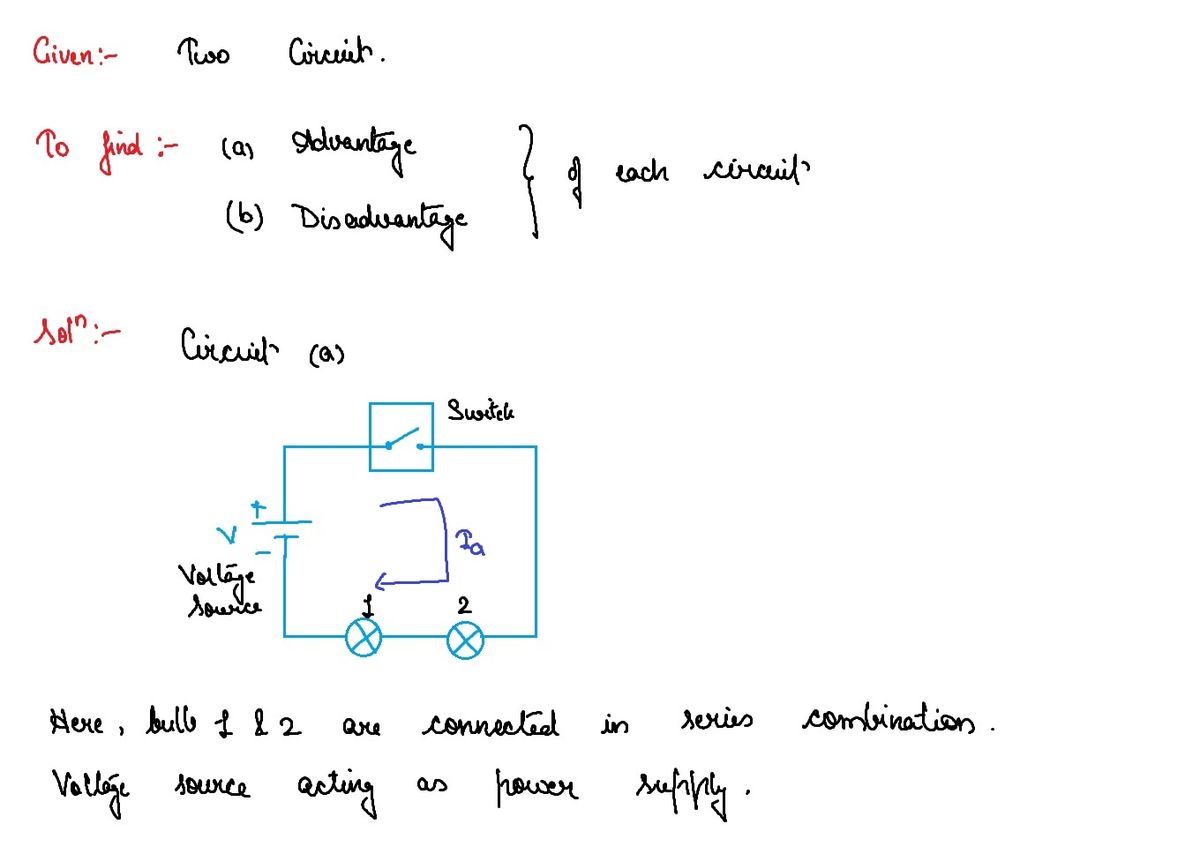 Given :- Two Circuit.
To find :- (a) Advantage
(b) Disadvantage
} of each circuit
Solⁿ :- Circuit (a)
Switch
+
V
-
Voltage
source
Ia
1
2
Here, bulb 1 & 2 are connected in series combination.
Voltage source acting as power supply.